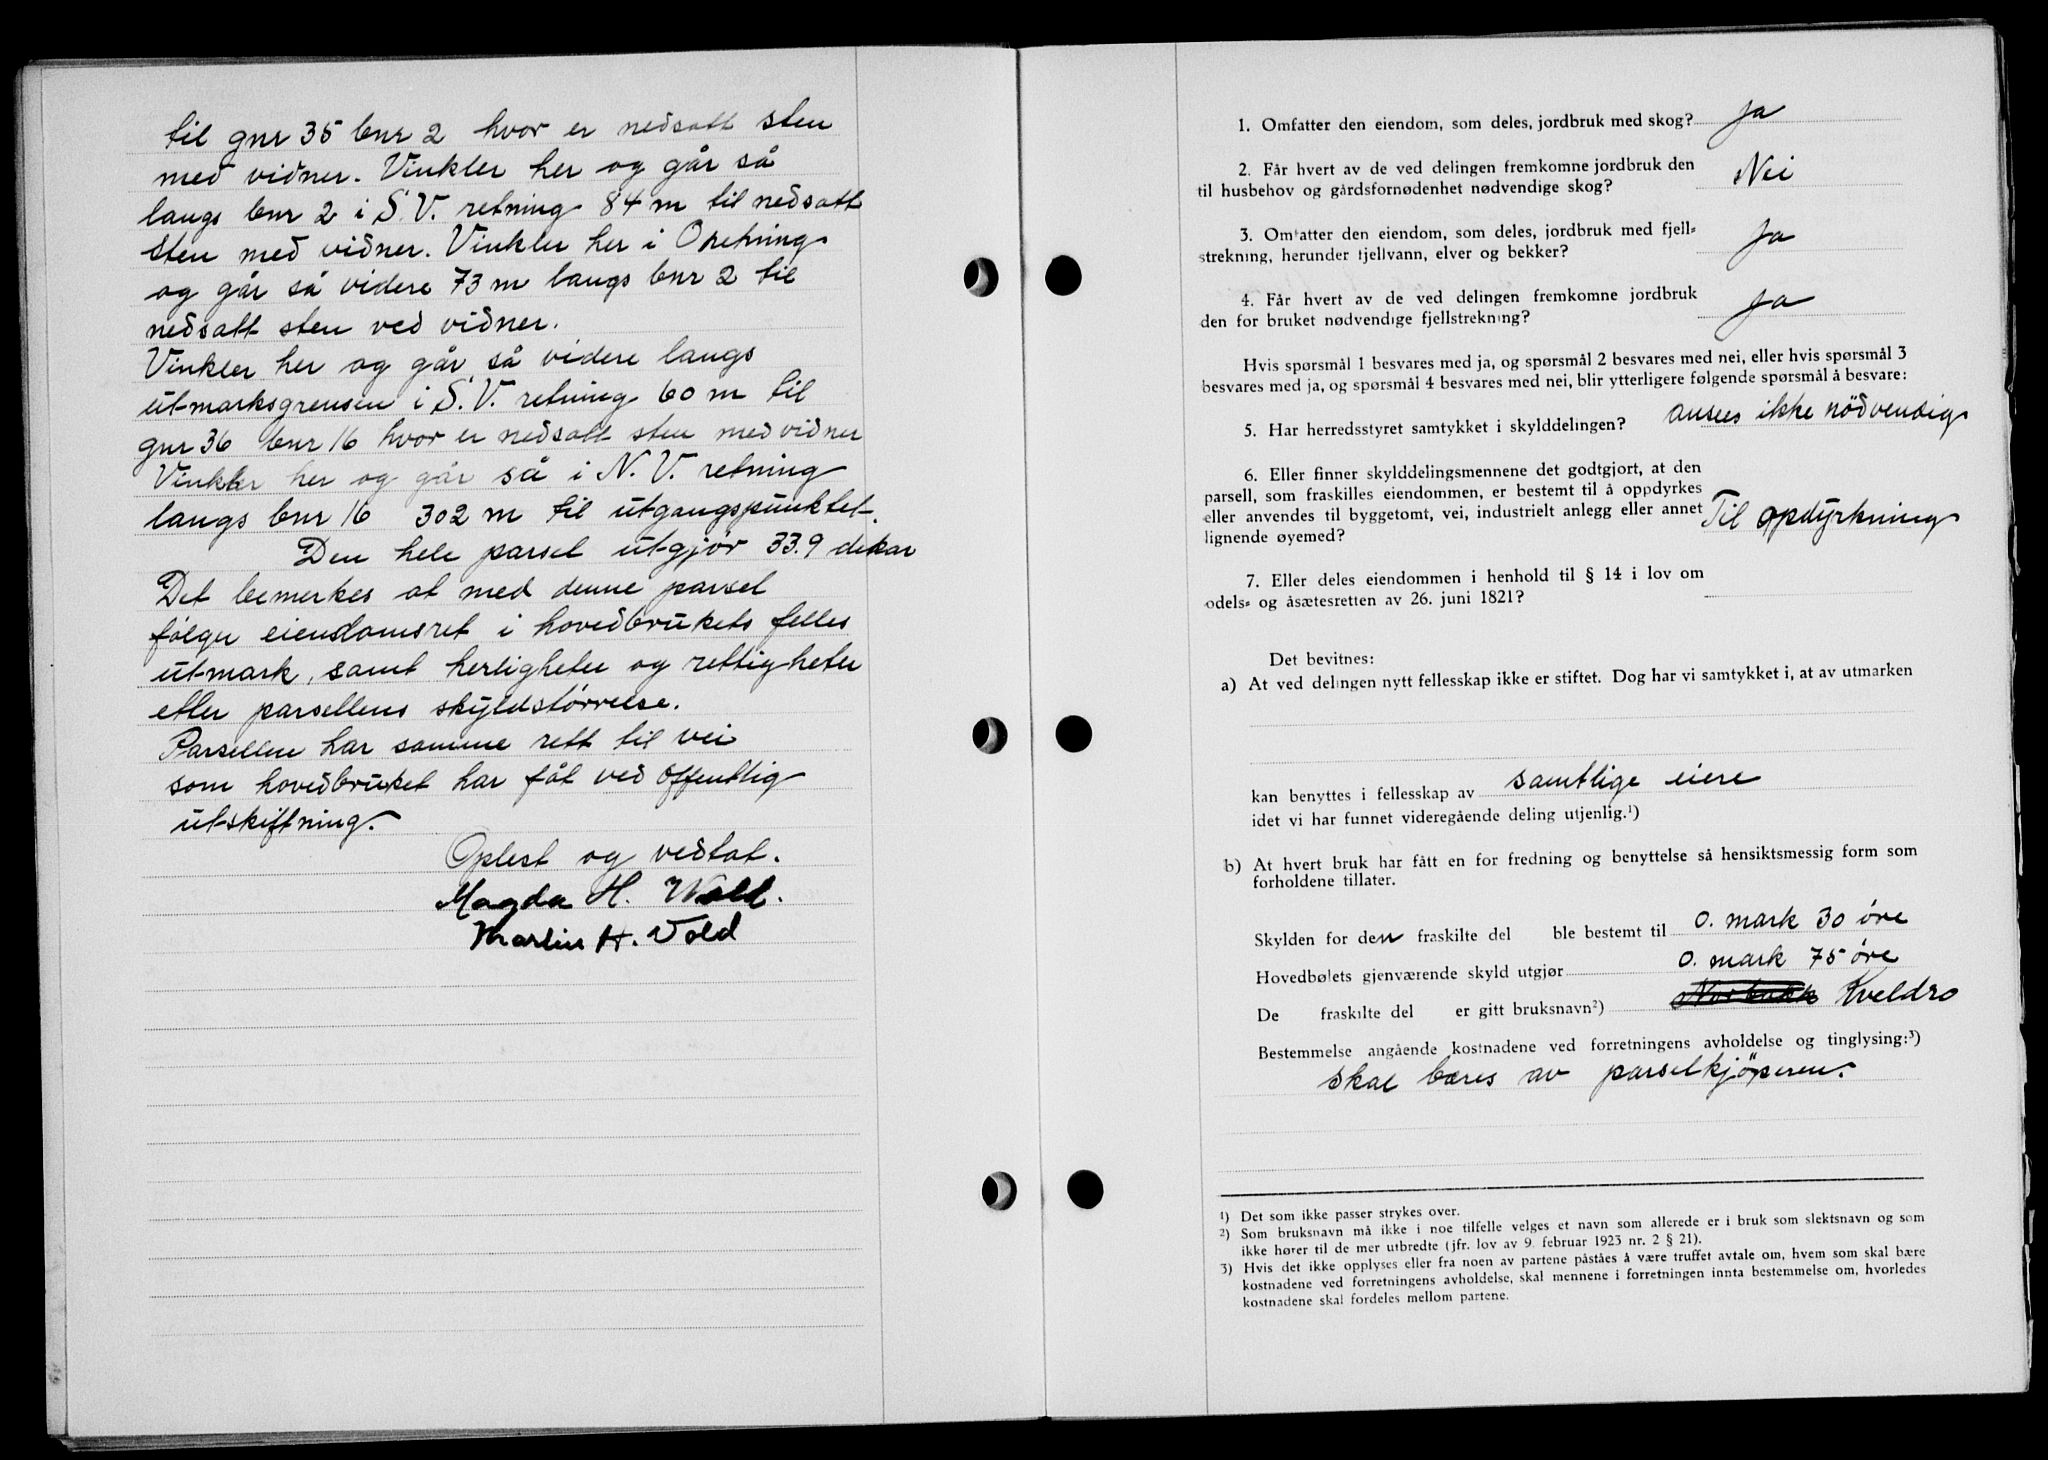 til gnr 35 bnr 2 hvor er nedsatt sten
med vidner. Vinkler her og går så
langs bnr 2 i S.V. retning 84 m til nedsatt
sten med vidner. Vinkler her i O retning
og går så videre 73 m langs bnr 2 til
nedsatt sten ved vidner.
Vinkler her og går så videre langs
utmarksgrensen i S.V. retning 60 m til
gnr 36 bnr 16 hvor er nedsatt sten med vidner
Vinkler her og går så i N.V. retning
langs bnr 16 302 m til utgangspunktet.
Den hele parsel utgjør 33.9 dekar
Det bemerkes at med denne parsel
følger eiendomsret i hovedbrukets felles
utmark, samt herligheter og rettigheter
etter parsellens skyldstørrelse.
Parsellen har samme rett til vei
som hovedbruket har fåt ved offentlig
utskiftning.
Oplest og vedtat.
Magda H. Wold.
Martin H. Vold
1. Omfatter den eiendom, som deles, jordbruk med skog? Ja
2. Får hvert av de ved delingen fremkomne jordbruk den
til husbehov og gårdsfornødenhet nødvendige skog? Nei
3. Omfatter den eiendom, som deles, jordbruk med fjell-
strekning, herunder fjellvann, elver og bekker? Ja
4. Får hvert av de ved delingen fremkomne jordbruk
den for bruket nødvendige fjellstrekning? Ja
Hvis spørsmål 1 besvares med ja, og spørsmål 2 besvares med nei, eller hvis spørsmål 3
besvares med ja, og spørsmål 4 besvares med nei, blir ytterligere følgende spørsmål å besvare:
5. Har herredsstyret samtykket i skylddelingen? ansees ikke nödvendig
6. Eller finner skylddelingsmennene det godtgjort, at den
parsell, som fraskilles eiendommen, er bestemt til å oppdyrkes
eller anvendes til byggetomt, vei, industrielt anlegg eller annet Til opdyrkning
lignende øyemed?
7. Eller deles eiendommen i henhold til § 14 i lov om
odels- og åsætesretten av 26. juni 1821?
Det bevitnes:
a) At ved delingen nytt fellesskap ikke er stiftet. Dog har vi samtykket i, at av utmarken
kan benyttes i fellesskap av samtlige eiere
idet vi har funnet videregående deling utjenlig.¹)
b) At hvert bruk har fått en for fredning og benyttelse så hensiktsmessig form som
forholdene tillater.
Skylden for den fraskilte del ble bestemt til 0. mark 30 öre
Hovedbølets gjenværende skyld utgjør 0. mark 75 öre
De fraskilte del er gitt bruksnavn²) Kveldro
Bestemmelse angående kostnadene ved forretningens avholdelse og tinglysing:³)
Skal bæres av parselkjöperen.
1) Det som ikke passer strykes over.
2) Som bruksnavn må ikke i noe tilfelle velges et navn som allerede er i bruk som slektsnavn og som
ikke hører til de mer utbredte (jfr. lov av 9. februar 1923 nr. 2 § 21).
3) Hvis det ikke opplyses eller fra noen av partene påståes å være truffet avtale om, hvem som skal bære
kostnadene ved forretningens avholdelse, skal mennene i forretningen innta bestemmelse om, hvorledes
kostnadene skal fordeles mellom partene.